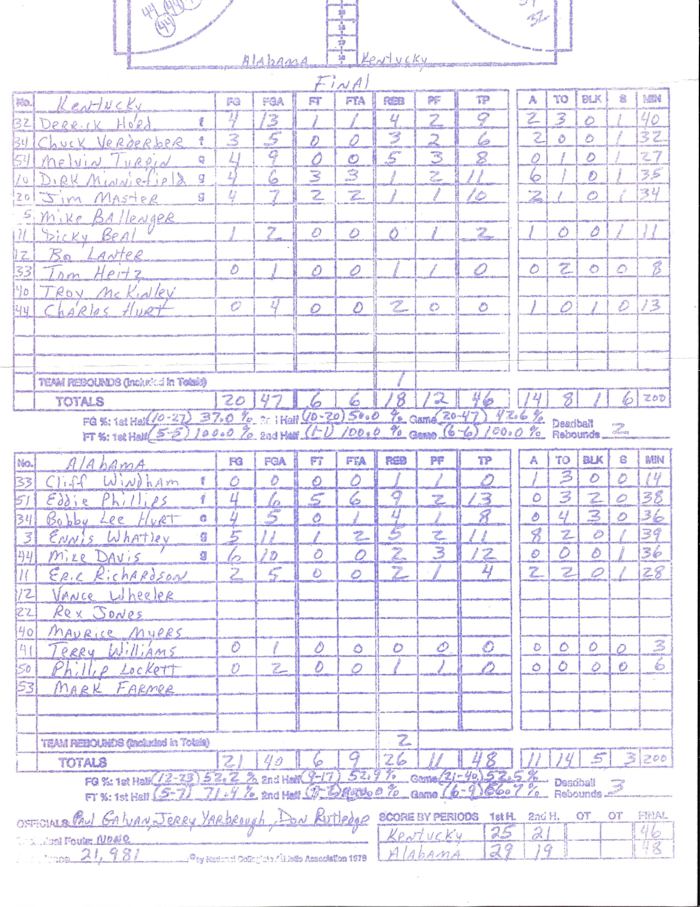 44
44
44
32
Alabama Kentucky
FINAL
No. Kentucky FG FGA FT FTA REB PF TP A TO BLK S MIN
32 Derrick Hord f 4 13 1 1 4 2 9 2 3 0 1 40
34 Chuck Verderber f 3 5 0 0 3 2 6 2 0 0 1 32
54 Melvin Turpin g 4 9 0 0 5 3 8 0 1 0 1 27
10 Dirk Minniefield g 4 6 3 3 1 2 11 6 1 0 1 35
20 Jim Master g 4 7 2 2 1 1 10 2 1 0 1 34
5 Mike Ballenger
11 Dicky Beal 1 2 0 0 0 1 2 1 0 0 1 11
12 Bo Lanter
33 Tom Heitz 0 1 0 0 1 1 0 0 2 0 0 8
40 Troy McKinley
44 Charles Hurt 0 4 0 0 2 0 0 1 0 1 0 13
TEAM REBOUNDS (Included in Totals) 1
TOTALS 20 47 6 6 18 12 46 14 8 1 6 200
FG %: 1st Half (10-27) 37.0 % 2nd Half (10-20) 50.0 % Game (20-47) 42.6 %
FT %: 1st Half (5-5) 100.0 % 2nd Half (1-1) 100.0 % Game (6-6) 100.0 % Deadball Rebounds 2
No. Alabama FG FGA FT FTA REB PF TP A TO BLK S MIN
33 Cliff Windham f 0 0 0 0 1 1 0 1 3 0 0 14
51 Eddie Phillips f 4 6 5 6 9 2 13 0 3 2 0 38
34 Bobby Lee Hurt c 4 5 0 1 4 1 8 0 4 3 0 36
3 Ennis Whatley g 5 11 1 2 5 2 11 8 2 0 1 39
44 Mike Davis g 6 10 0 0 2 3 12 0 0 0 1 36
11 Eric Richardson 2 5 0 0 2 1 4 2 2 0 1 28
12 Vance Wheeler
22 Rex Jones
40 Maurice Myers
41 Terry Williams 0 1 0 0 0 0 0 0 0 0 0 3
50 Phillip Lockett 0 2 0 0 1 1 0 0 0 0 0 6
53 Mark Farmer
TEAM REBOUNDS (Included in Totals) 2
TOTALS 21 40 6 9 26 11 48 11 14 5 3 200
FG %: 1st Half (12-23) 52.2 % 2nd Half (9-17) 52.9 % Game (21-40) 52.5 %
FT %: 1st Half (5-7) 71.4 % 2nd Half % Game (6-9) 66.7 % Deadball Rebounds 3
OFFICIALS: Paul Galvan, Jerry Yarbrough, Don Rutledge SCORE BY PERIODS 1st H. 2nd H. OT OT FINAL
Fouls: None Kentucky 25 21 46
21,981 Association 1979 Alabama 29 19 48